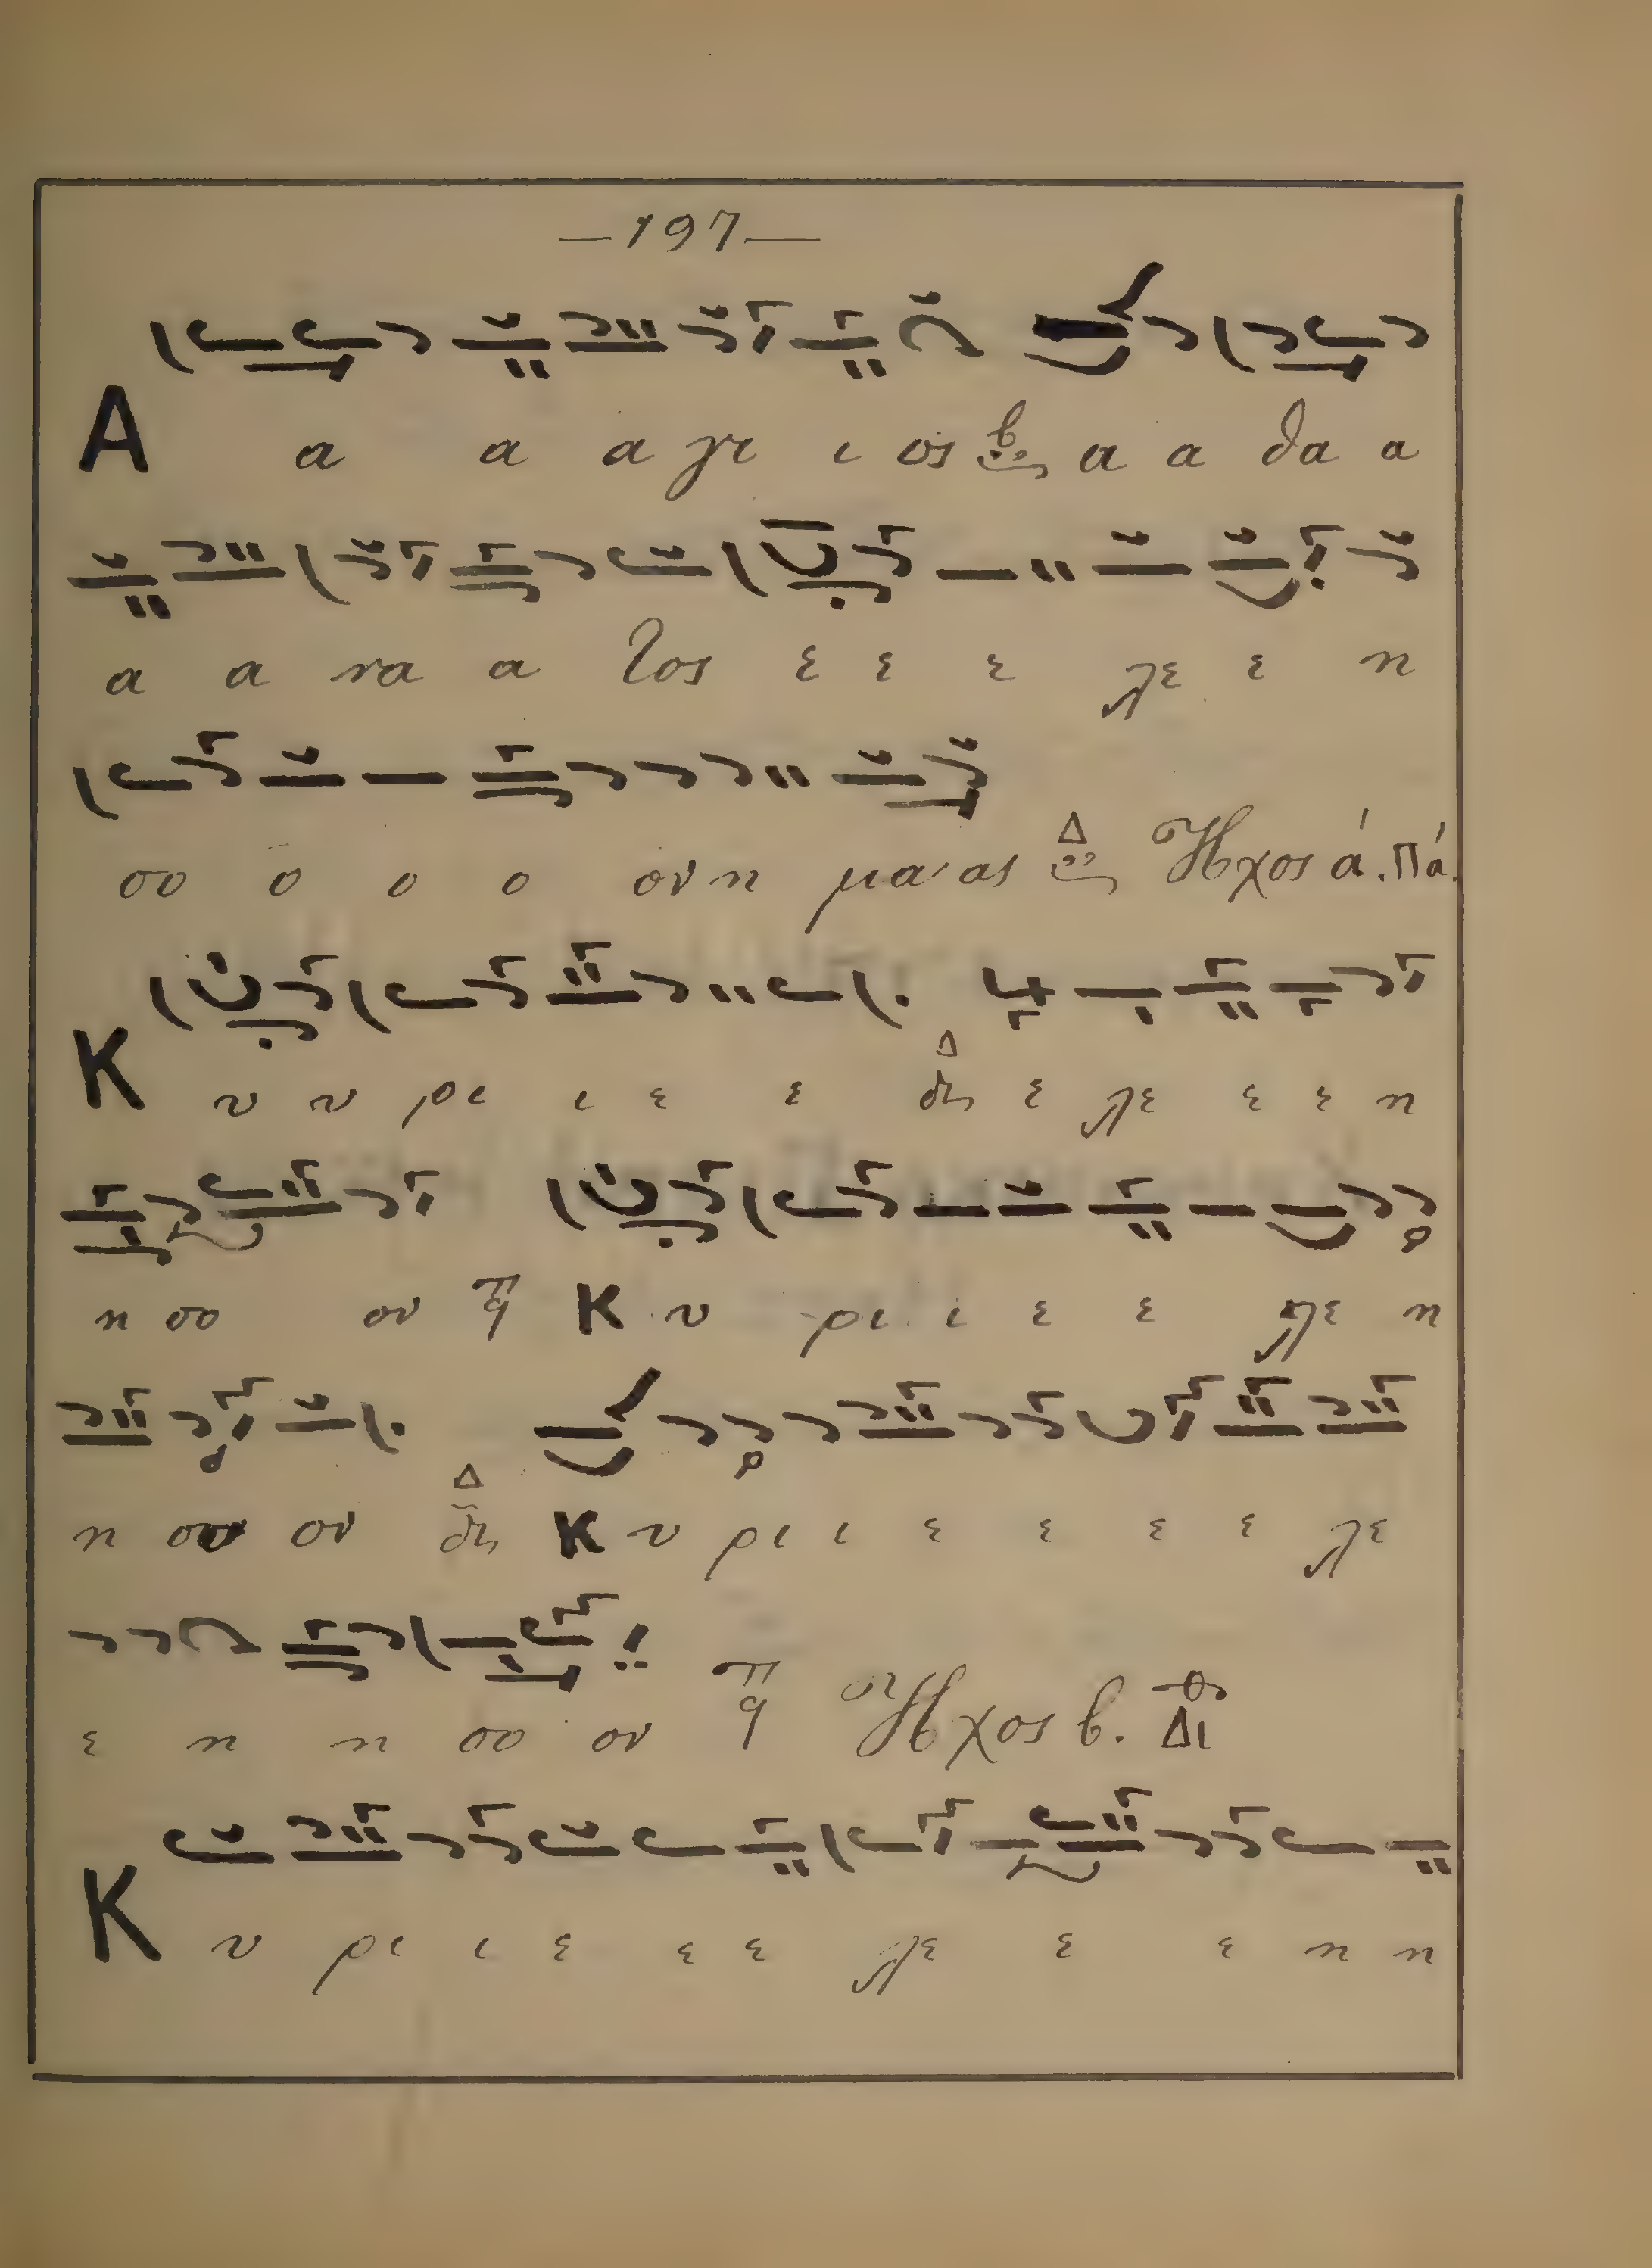 —197—
Α α α α γι ι ος α α θα α
α α να α τος ε ε ε λε ε η
σο ο ο ο ον η μα ας Δ Ἦχος ά. Πά.
Κ υ υ ρι ι ε ε Δ ε λε ε ε η
η σο ον π q Κ υ ρι ι ε ε λε η
η σο ον Δ Κ υ ρι ι ε ε ε ε λε
ε η η σο ον π q Ἦχος β. Δι
Κ υ ρι ι ε ε ε λε ε ε η η